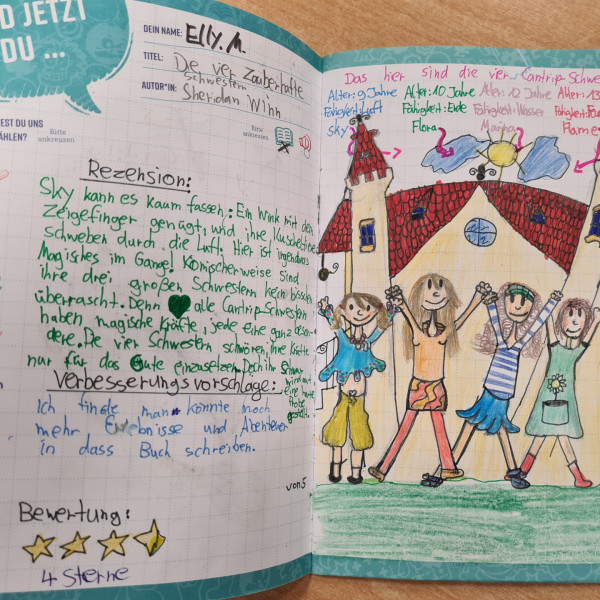 D JETZT
DU ...
DEIN NAME: Elly. M.
TITEL: De vier Zauberhafte
Schwestern
AUTOR*IN: Sheridan Winn
EST DU UNS
ÄHLEN?
Bitte
ankreuzen
Bitte
ankreuzen
Rezension:
Sky kann es kaum fassen: Ein Wink mit dem
Zeigefinger genügt, und ihre Kuscheltiere
schweben durch die Luft. Hier ist irgendwas
Magisches im Gange! Komischerweise sind
ihre drei großen Schwestern kein bisschen
überrascht. Denn alle Cantrip-Schwestern
haben magische Kräfte, jede eine ganz beson-
dere. De vier Schwestern schwören, ihre Kräfte
nur für das Gute einzusetzen. Doch ihr Schwur
wird auf
eine harte
Probe
gestellt.
Verbesserungsvorschläge:
Ich finde man könnte noch
mehr Erlebnisse und Abenteuer
in dass Buch schreiben.
von 5
Bewertung:
4 Sterne
Das hier sind die vier Cantrip-Schwe
Alter: 9 Jahre Alter: 10 Jahre Alter: 12 Jahre Alter: 13
Fähigkeit: Luft Fähigkeit: Erde Fähigkeit: Wasser Fähigkeit: Feu
Sky Flora Marina Flame